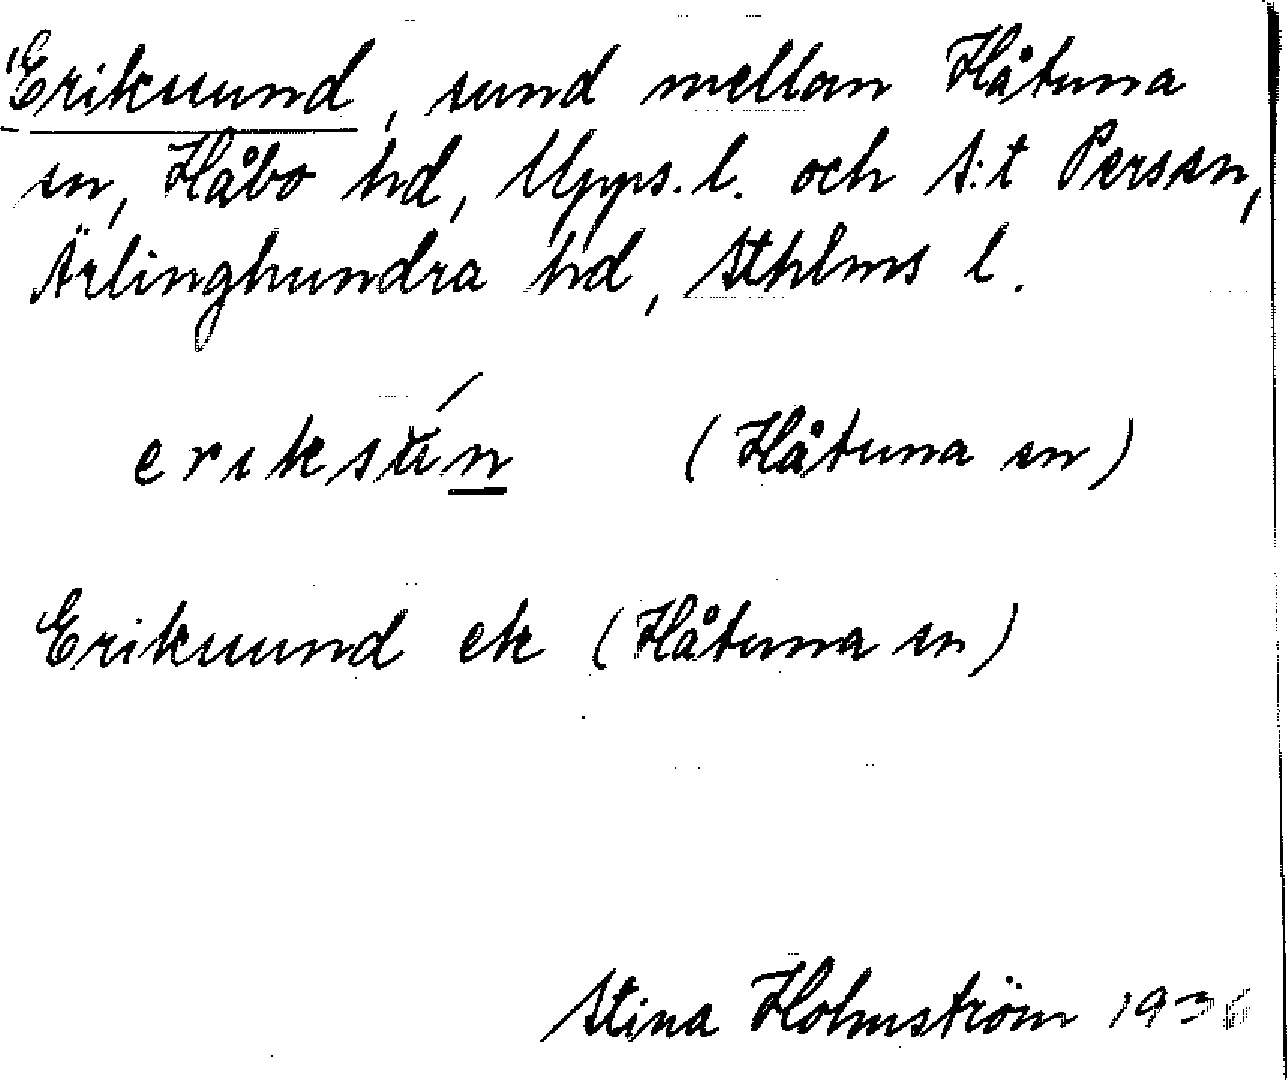 Erikssund, sund mellan Håtuna
sn, Håbo hd, Upps. l. och S:t Pers sn,
Ärlinghundra hd, Sthlms l.
eriksún (Håtuna sn)
Erikssund ek (Håtuna sn)
Stina Holmström